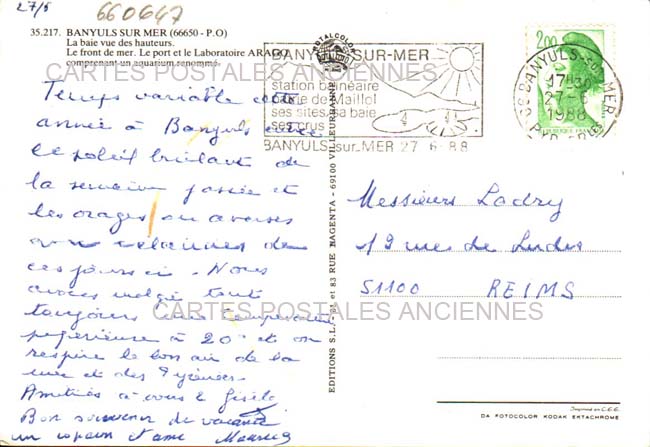 27/5
660647
35.217. BANYULS SUR MER (66650 - P.O)
La baie vue des hauteurs.
Le front de mer. Le port et le Laboratoire ARAGO
comprenant un aquarium renommé.
CARTES POSTALES ANCIENNES
COMBIER
BANYULS-SUR-MER
station balnéaire
patrie de Maillol
ses sites, sa baie
ses crus
BANYULS-sur-MER 27 6 88
2,00
66 BANYULS-sur-MER
17H30
27-6
1988
PYR.-ORles
Temps variable cette
année à Banyuls entre
le soleil brûlant de
la semaine passée et
les orages ou averses
de
ces jours ci. Nous
avons malgré tout
toujours une température
supérieure à 20° et on
respire le bon air de la
mer et des Pyrénées.
Amitiés à vous Gisèle
Bon souvenir de vacances
un copain et ami Maurice
EDITIONS S.L. - 81 et 83 RUE MAGENTA - 69100 VILLEURBANNE
Messieurs Ladry
19 rue de Ludes
51100 REIMS
CARTES POSTALES ANCIENNES
Imprimé en C.E.E.
DA FOTOCOLOR KODAK EKTACHROME